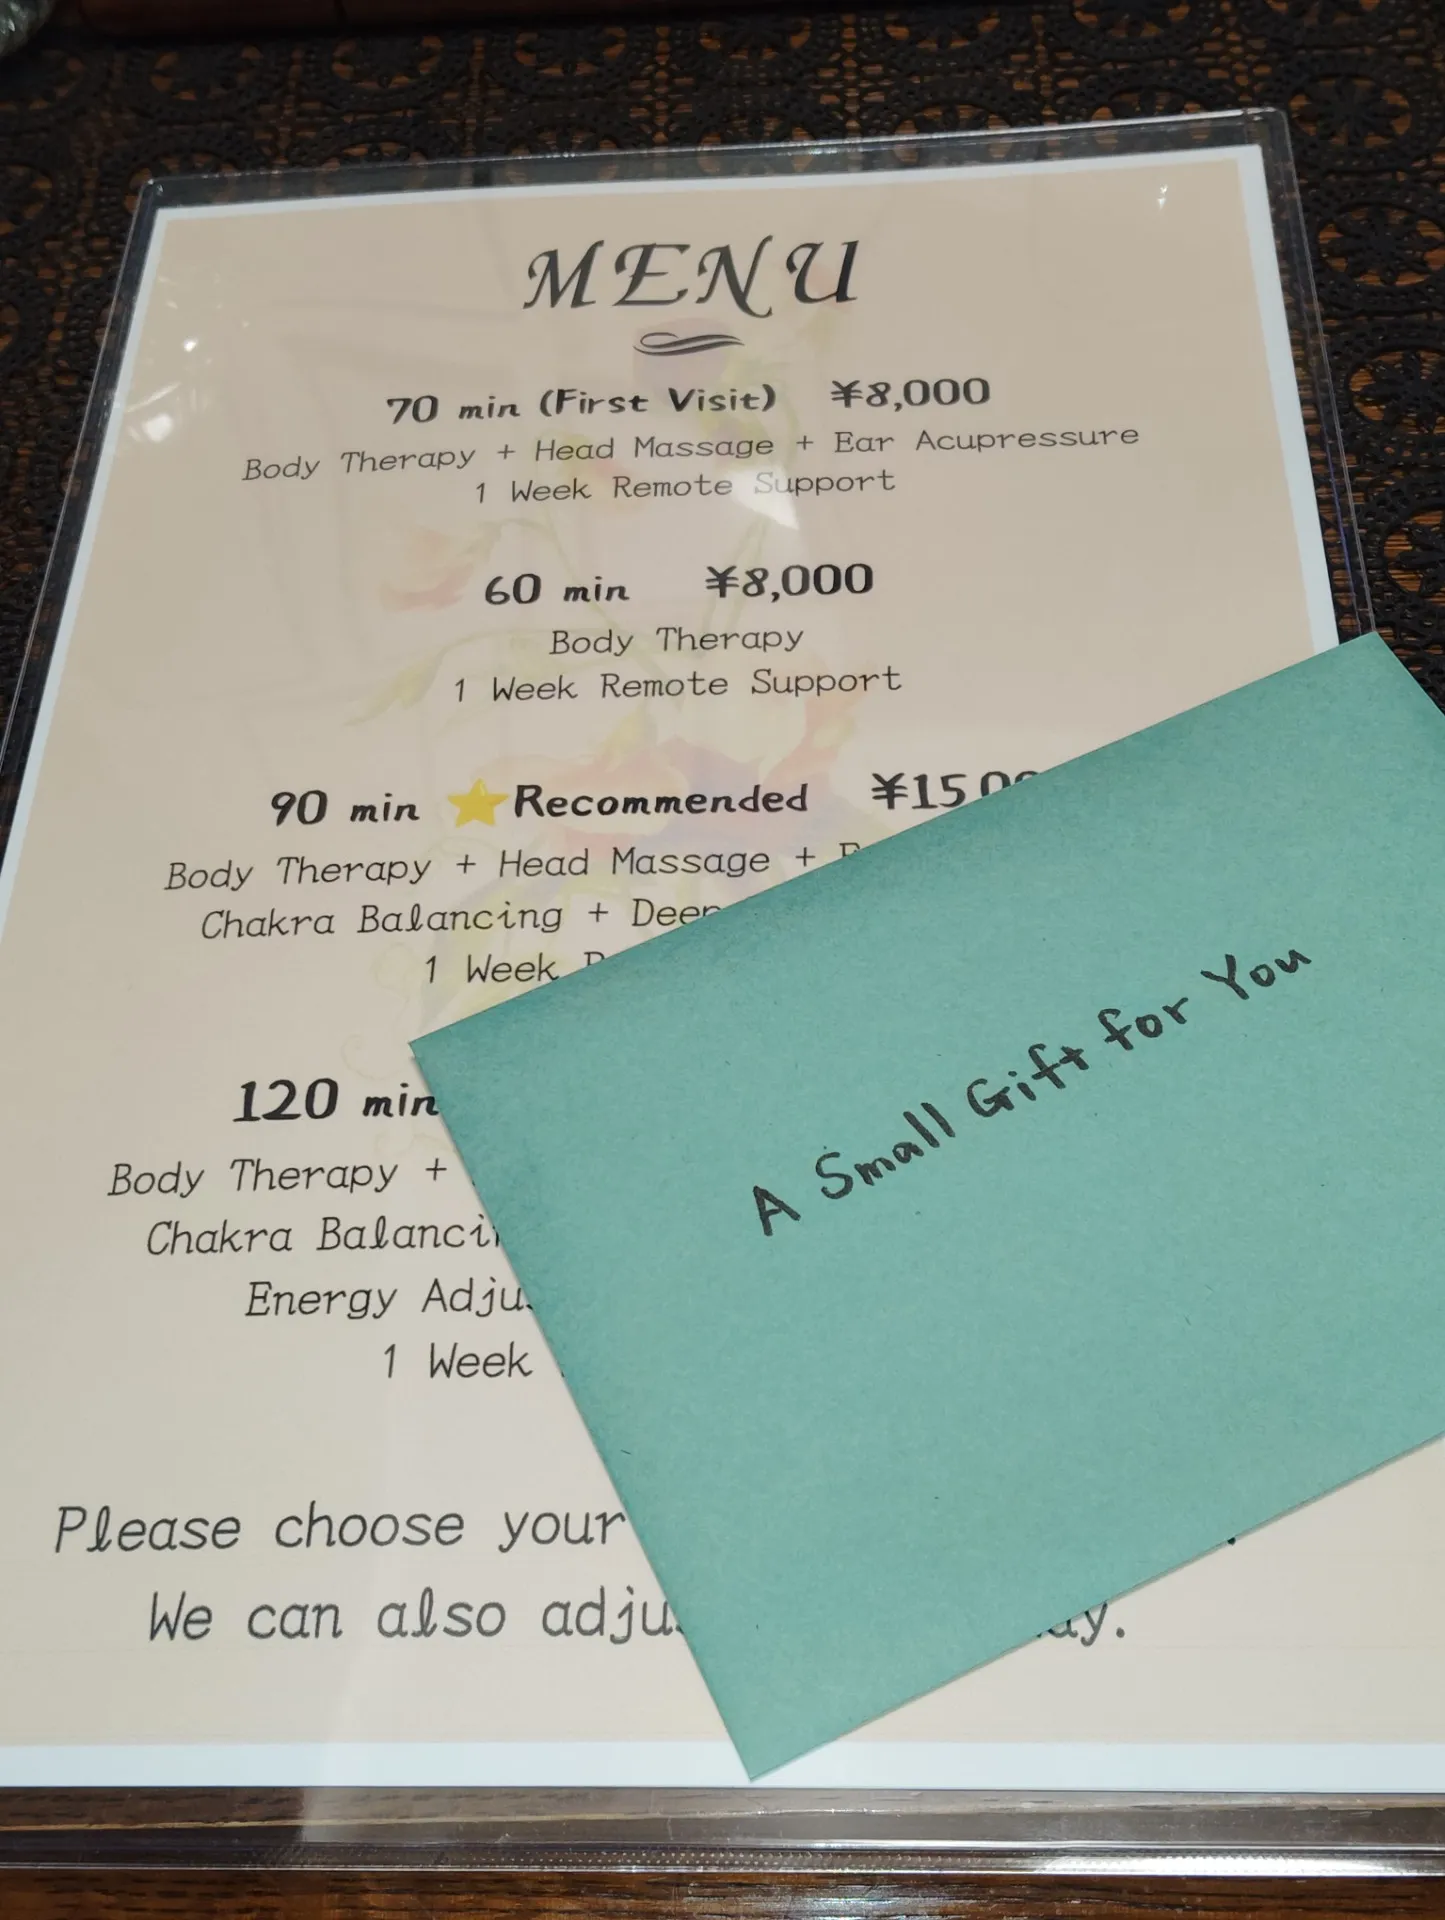 MENU
70 min (First Visit) ¥8,000
Body Therapy + Head Massage + Ear Acupressure
1 Week Remote Support
60 min ¥8,000
Body Therapy
1 Week Remote Support
90 min ⭐Recommended ¥15,00
Body Therapy + Head Massage +
Chakra Balancing + Deep
1 Week
120 min
Body Therapy +
Chakra Balancin
Energy Adju
1 Week
Please choose your
We can also adju ay.
A Small Gift for You